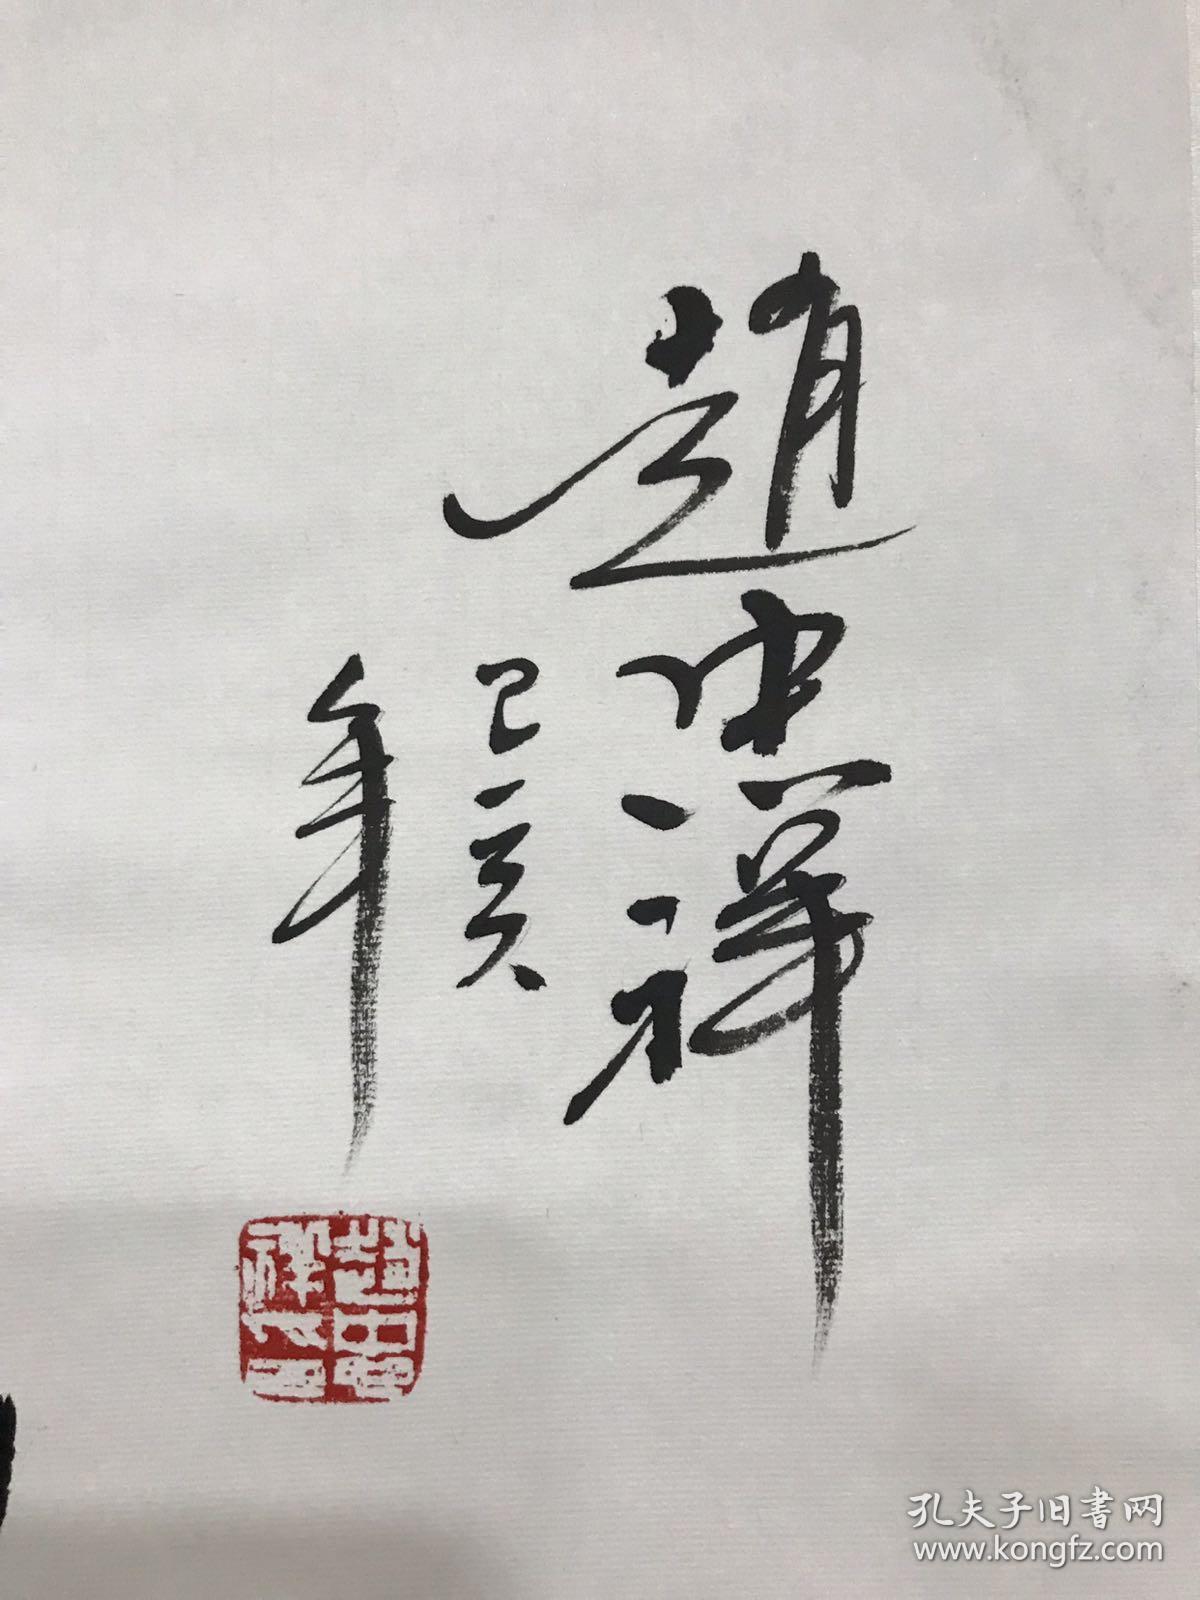 趙忠祥
己亥
年
趙忠
祥印
孔夫子旧書网
www.kongfz.com